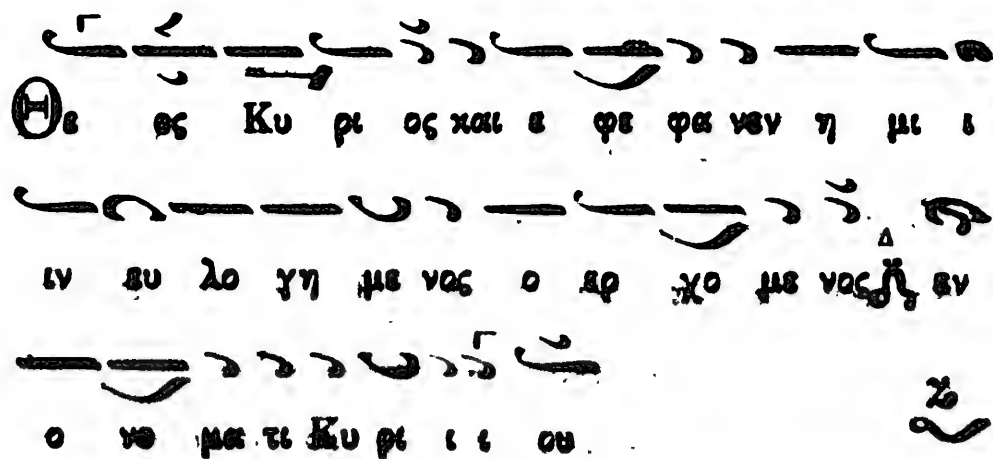 Θε ος Κυ ρι ος και ε φε φα νεν η μι ι
ιν ευ λο γη με νος ο ερ χο με νος Δ εν
ο νο μα τι Κυ ρι ι ι ου